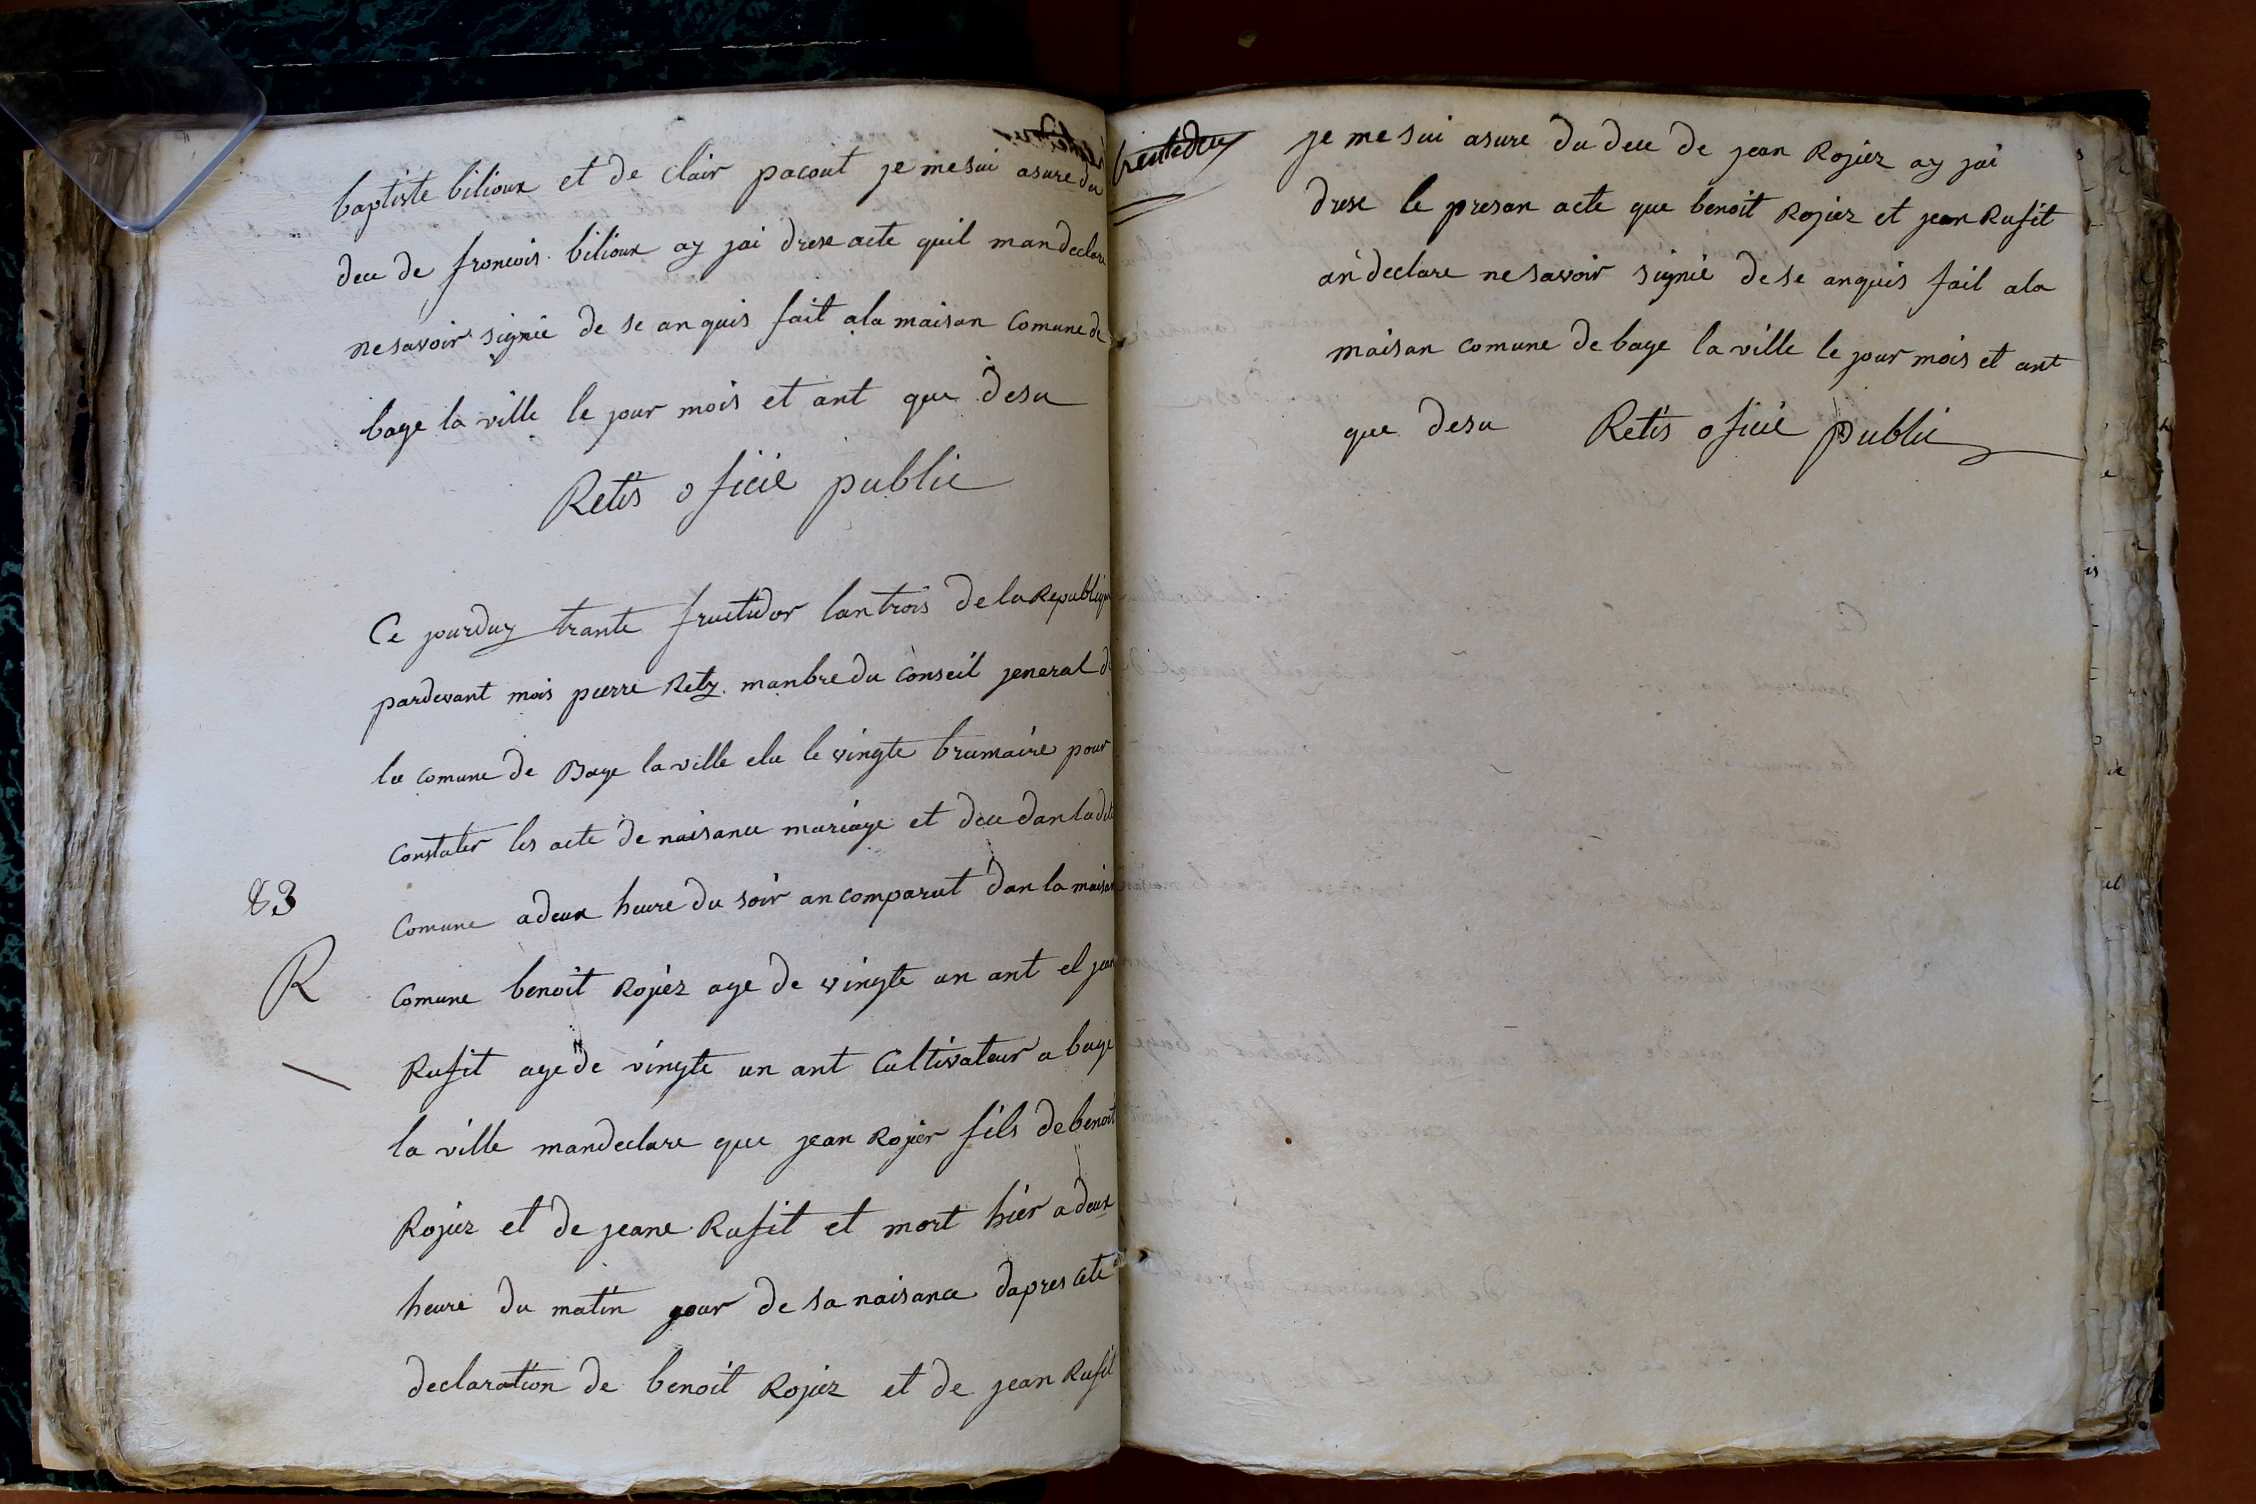 baptiste bilioux et de clair pacout je me sui asure du
dece de froncois bilioux ay jai drese acte quil man declare
ne savoir signié de se anquis fait a la maison Comune de
bage la ville le jour mois et ant que desu
Retis oficié public
Ce jourduy trante fructidor lan trois de la Republique
pardevant mois pierre Rety manbre du Conseil jeneral de
la comune de Bage la ville elu le vingte brumaire pour
Constater les acte de naisance mariage et dece dan la dite
Comune a deux heure du soir an comparut dan la maison
83
Comune benoit Rojiez age de vingte un ant et jean
R
Rufit age de vingte un ant Cultivateur a bage
la ville mandeclare que jean Rojier fils de benoit
Rojiez et de jeane Rufit et mort hier a deux
heure du matin jour de sa naisance dapres cete
declaration de benoit Rojiez et de jean Rufit
trentedeux
je me sui asure du dece de jean Rojiez ay jai
drese le presan acte que benoit Rojiez et jean Rufit
an declare ne savoir signié de se anquis fait a la
maison comune de bage la ville le jour mois et ant
que desu Retis oficié public